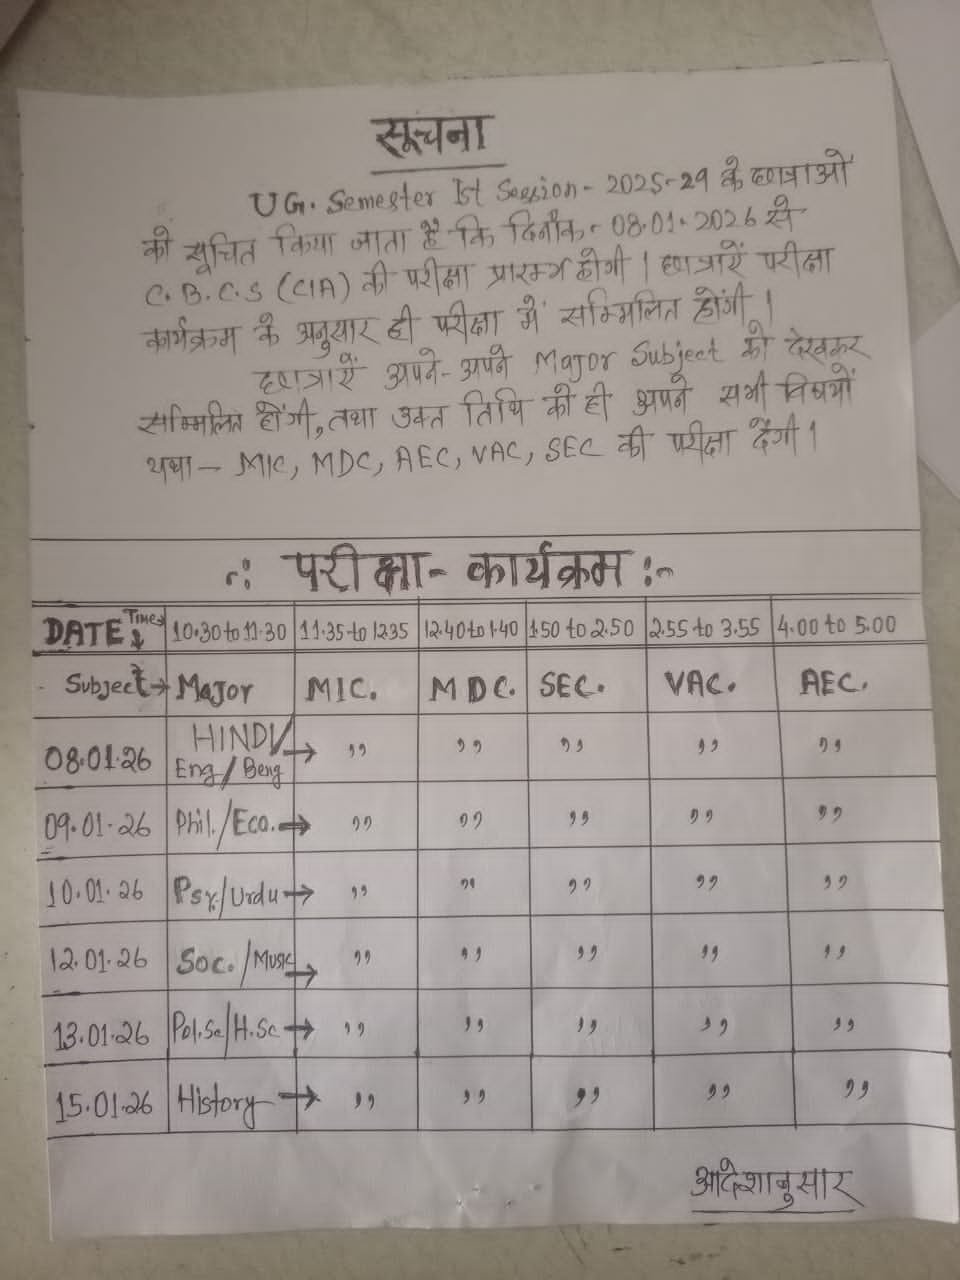 सूचना
UG. Semester Ist Session - 2025-29 के छात्राओं
को सूचित किया जाता है कि दिनाँक - 08.01.2026 से
C.B.C.S (CIA) की परीक्षा प्रारम्भ होगी । छात्राऐं परीक्षा
कार्यक्रम के अनुसार ही परीक्षा में सम्मिलित होंगी ।
छात्राऐं अपने-अपने Major Subject को देखकर
सम्मिलित होंगी, तथा उक्त तिथि को ही अपने सभी विषयों
यथा - MIC, MDC, AEC, VAC, SEC की परीक्षा देंगी ।
~: परीक्षा - कार्यक्रम :~
DATE ↓ Time→ 10.30 to 11.30 11.35 to 12.35 12.40 to 1.40 1.50 to 2.50 2.55 to 3.55 4.00 to 5.00
Subject → Major MIC. MDC. SEC. VAC. AEC.
08.01.26 HINDI/ Eng/Beng → ,, ,, ,, ,, ,,
09.01.26 Phil./Eco. → ,, ,, ,, ,, ,,
10.01.26 Psy./Urdu → ,, ,, ,, ,, ,,
12.01.26 Soc./Music → ,, ,, ,, ,, ,,
13.01.26 Pol.Sc/H.Sc → ,, ,, ,, ,, ,,
15.01.26 History → ,, ,, ,, ,, ,,
आदेशानुसार